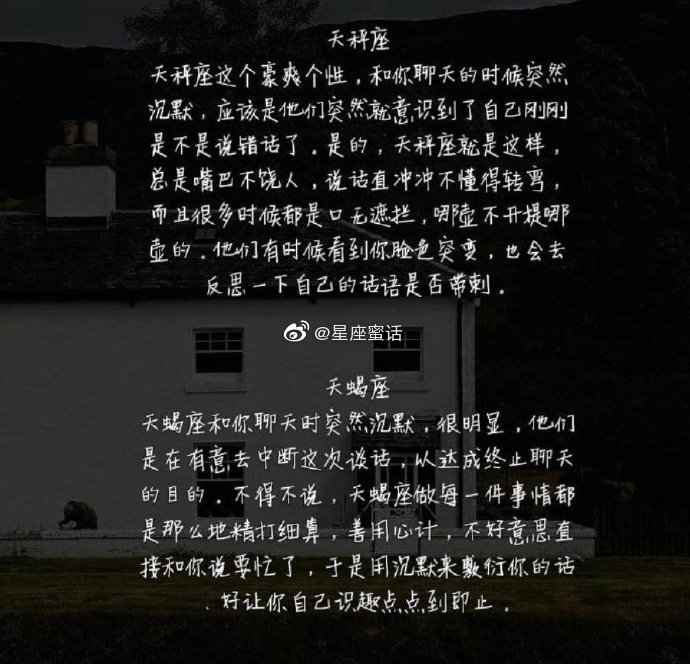 天秤座
天秤座这个豪爽个性，和你聊天的时候突然
沉默，应该是他们突然就意识到了自己刚刚
是不是说错话了．是的，天秤座就是这样，
总是嘴巴不饶人，说话直冲冲不懂得转弯，
而且很多时候都是口无遮拦，哪壶不开提哪
壶的．他们有时候看到你脸色突变，也会去
反思一下自己的话语是否带刺．
@星座蜜话
天蝎座
天蝎座和你聊天时突然沉默，很明显，他们
是在有意去中断这次谈话，以达成终止聊天
的目的．不得不说，天蝎座做每一件事情都
是那么地精打细算，善用心计，不好意思直
接和你说要忙了，于是用沉默来敷衍你的话
．好让你自己识趣点点到即止．